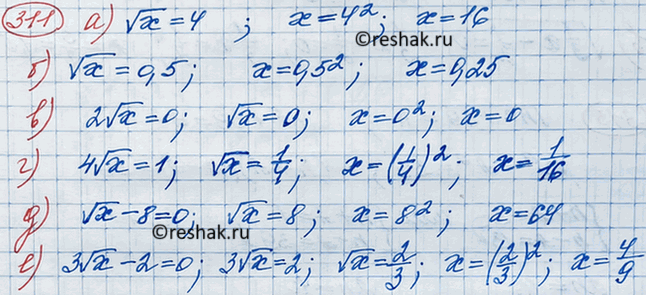 311 а) √x = 4 ; x = 4²; x = 16
©reshak.ru
б) √x = 0,5; x = 0,5²; x = 0,25
в) 2√x = 0; √x = 0; x = 0²; x = 0
г) 4√x = 1; √x = 1/4; x = (1/4)²; x = 1/16
д) √x - 8 = 0; √x = 8; x = 8²; x = 64
©reshak.ru
е) 3√x - 2 = 0; 3√x = 2; √x = 2/3; x = (2/3)²; x = 4/9